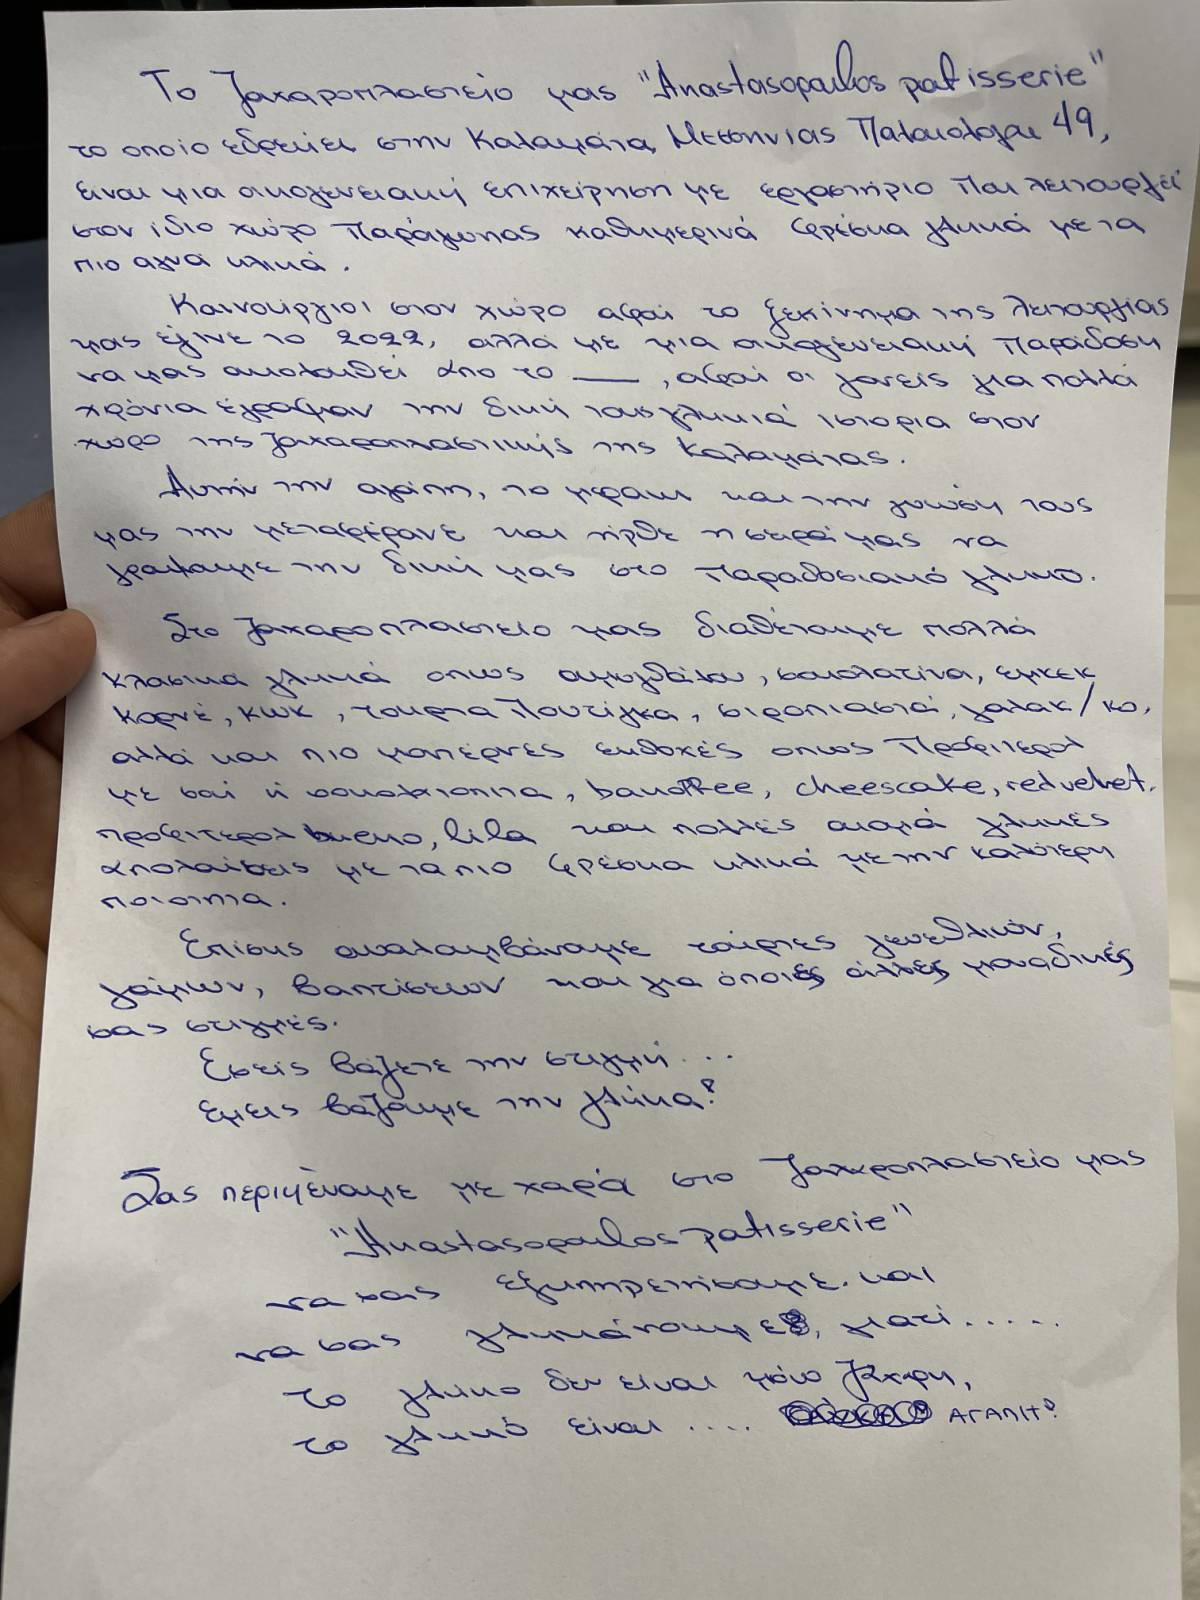 Το Ζαχαροπλαστείο μας "Anastasopoulos patisserie"
το οποίο εδρεύει στην Καλαμάτα Μεσσηνίας Παλαιολόγου 49,
ειναι μια οικογενειακή επιχείρηση με εργαστήριο που λειτουργεί
στον ίδιο χώρο παράγωντας καθημερινά φρέσκα γλυκά με τα
πιο αγνά υλικά.
Καινούργιοι στον χώρο αφού το ξεκίνημα της λειτουργίας
μας έγινε το 2022, αλλά με μια οικογενειακή παράδοση
να μας ακολουθεί απο το ___, αφού οι γονείς για πολλά
χρόνια έγραψαν την δική τους γλυκιά ιστορια στον
χωρο της Ζαχαροπλαστικής της Καλαμάτας.
Αυτήν την αγάπη, το μερακι και την γνώση τους
μας την μεταφέρανε και ήρθε η σειρά μας να
γραψουμε την δική μας στο παραδοσιακό γλυκο.
Στο Ζαχαροπλαστείο μας διαθέτουμε πολλά
κλασικά γλυκά οπως αμυγδάλου, σοκολατίνα, εκμεκ
κορνέ, κωκ, τουρτα Πουτίγκα, σιροπιαστά, γαλακ/κο,
αλλά και πιο μοντέρνες εκδοχές οπως Προφιτερολ
με σου ή σοκολατοπιτα, banoffee, cheescake, red velvet,
προφιτερολ bueno, lila και πολλές ακομά γλυκές
απολαύσεις με τα πιο φρέσκα υλικά με την καλύτερη
ποιοτητα.
Επίσης αναλαμβάνουμε τούρτες γενεθλιών,
γάμων, βαπτίσεων και για όποιες άλλες μοναδικές
σας στιγμές.
Εσείς βάζετε την στιγμή...
εμεις βάζουμε την γλύκα!
Σας περιμένουμε με χαρά στο Ζαχαροπλαστείο μας
"Anastasopoulos patisserie"
να σας εξυπηρετήσουμε. και
να σας γλυκάνουμε, γιατί.....
το γλυκο δεν ειναι μόνο ζάχαρη,
το γλυκό είναι .... ΑΓΑΠΗ!